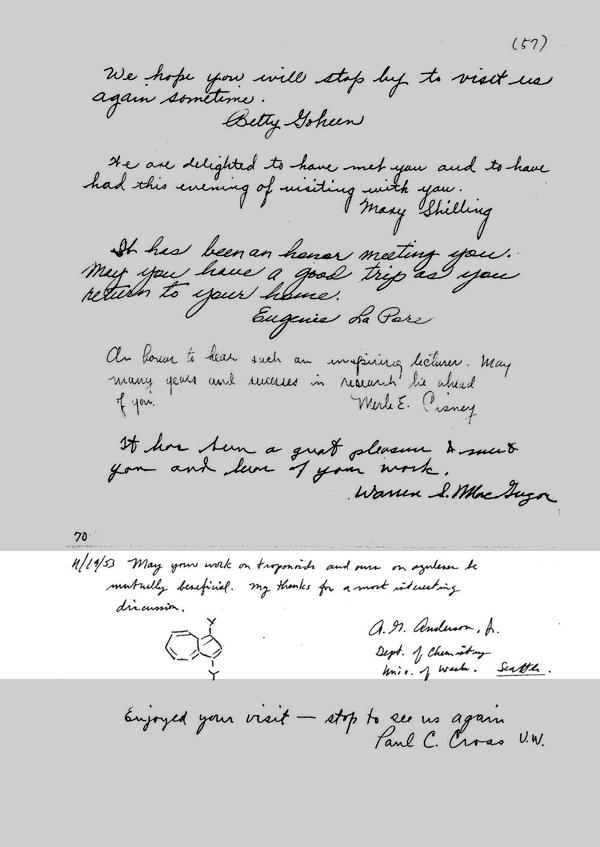 (57)
We hope you will stop by to visit us
again sometime.
Betty Goheen
We are delighted to have met you and to have
had this evening of visiting with you.
Mary Shilling
It has been an honor meeting you.
May you have a good trip as you
return to your home.
Eugenie La Pore
An honor to hear such an inspiring lecturer. May
many years and successes in research lie ahead
of you.
Merle E. Cisney
It has been a great pleasure to meet
you and hear of your work.
Warren S. MacGregor
70
11/19/53 May your work on troponoids and ours on azulenes be
mutually beneficial. My thanks for a most interesting
discussion.
A. G. Anderson, Jr.
Dept. of Chemistry
Univ. of Wash. Seattle.
X
Y
Enjoyed your visit — stop to see us again
Paul C. Cross U.W.